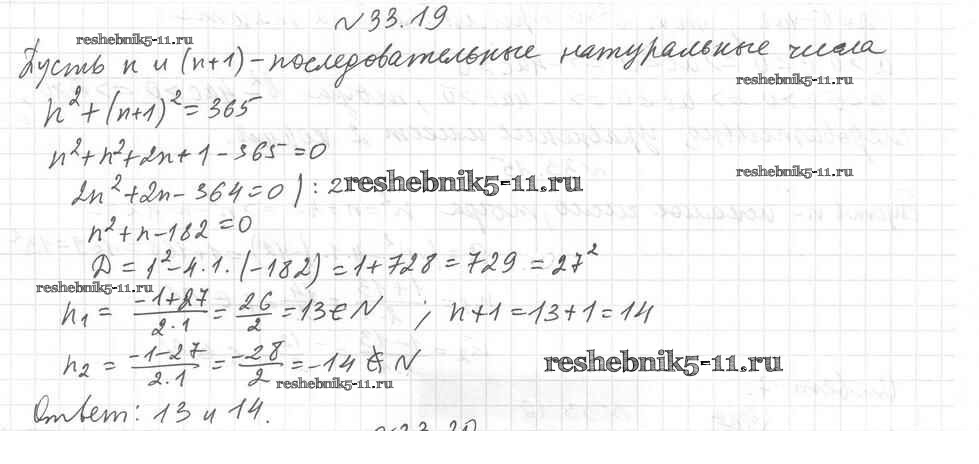 №33.19
reshebnik5-11.ru
Пусть n и (n+1) - последовательные натуральные числа
reshebnik5-11.ru
n² + (n+1)² = 365
n² + n² + 2n + 1 - 365 = 0
reshebnik5-11.ru
2n² + 2n - 364 = 0 ) : 2
reshebnik5-11.ru
n² + n - 182 = 0
D = 1² - 4·1·(-182) = 1 + 728 = 729 = 27²
reshebnik5-11.ru
n₁ = (-1+27)/(2·1) = 26/2 = 13 ∈ N ; n+1 = 13+1 = 14
n₂ = (-1-27)/(2·1) = -28/2 = -14 ∉ N
reshebnik5-11.ru
reshebnik5-11.ru
Ответ: 13 и 14.